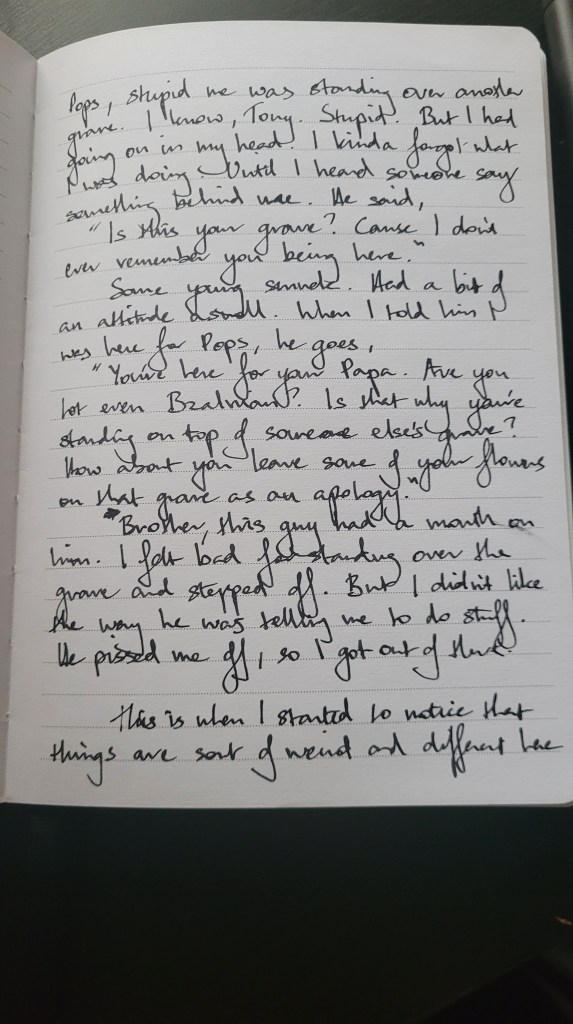 Pops, stupid me was standing over another
grave. I know, Tony. Stupid. But I had
going on in my head. I kinda forgot what
I was doing. Until I heard someone say
something behind me. He said,
"Is this your grave? Cause I don't
ever remember you being here."
Some young . Had a bit of
an attitude aswell. When I told him I
was here for Pops, he goes,
"You're here for your Papa. Are you
not even ? Is that why you're
standing on top of someone else's grave?
How about you leave some of your flowers
on that grave as an apology."
"Brother, this guy had a mouth on
him. I felt bad for standing over the
grave and stepped off. But I didn't like
the way he was telling me to do stuff.
He pissed me off, so I got out of there.
This is when I started to notice that
things are sort of weird and different here